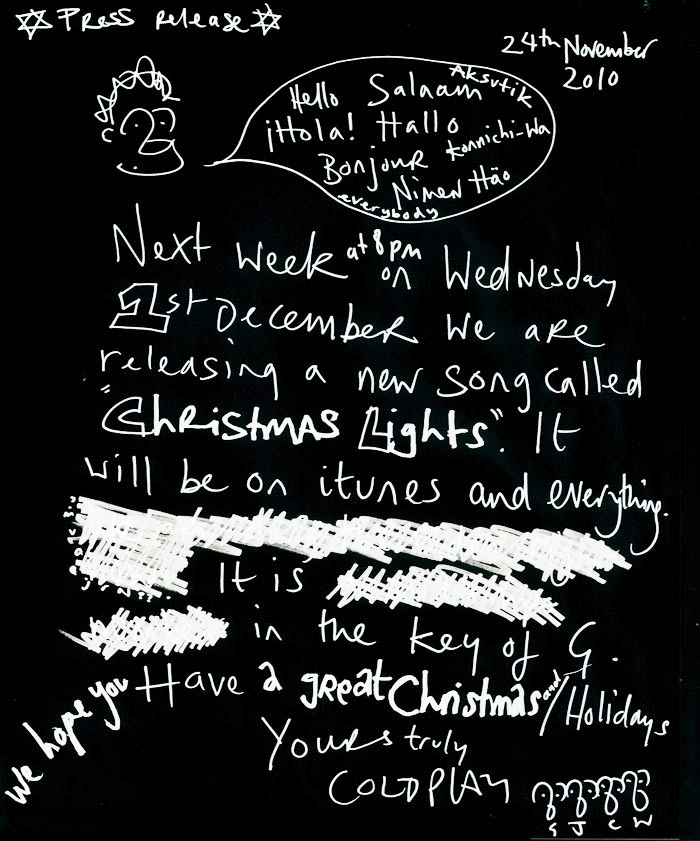 Press release
24th November
2010
Hello Salaam Aksutik
¡Hola! Hallo
Bonjour Konnichi-Wa
Nimen Hāo
everybody
Next week at 8pm on Wednesday
1st December we are
releasing a new song called
"Christmas Lights". It
will be on itunes and everything.
It is
in the key of G.
We hope you Have a great Christmas and/Holidays
Yours truly
COLDPLAY
G J C W